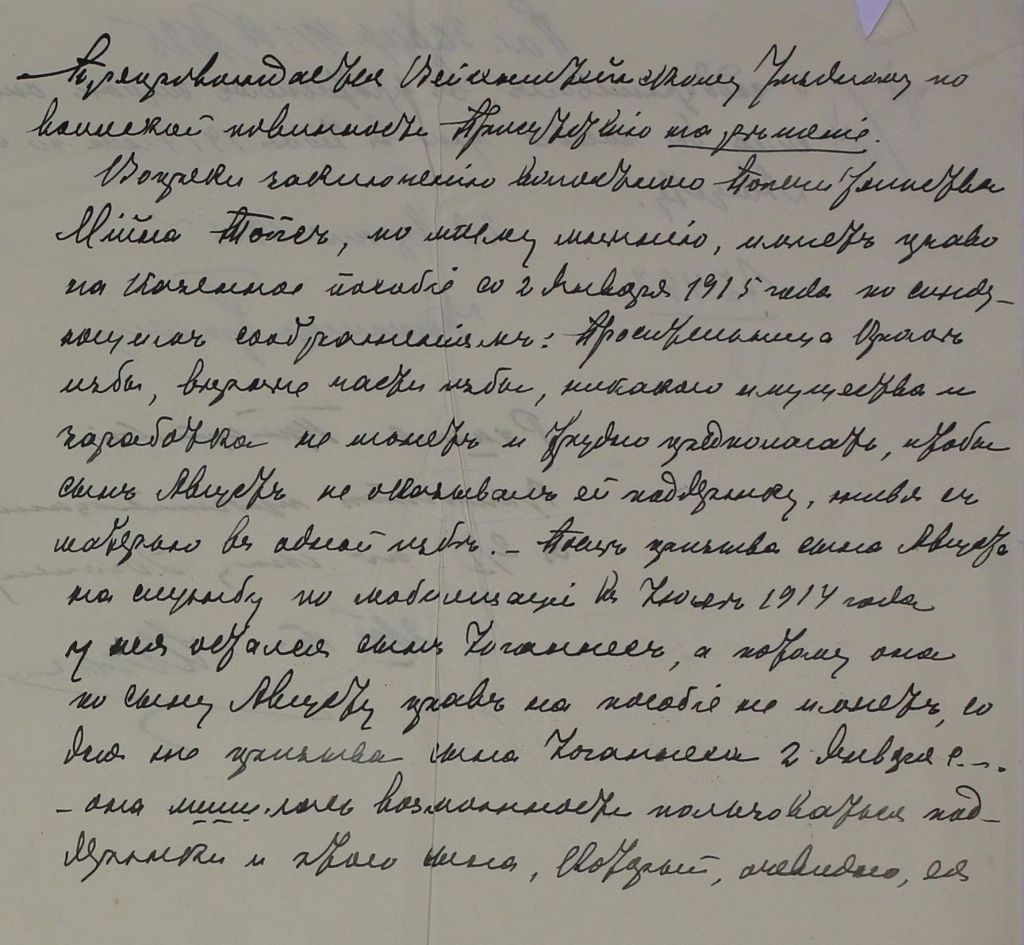 Препровождается Вейсенштейнскому Уѣздному по
воинской повинности Присутствію на рѣшеніе.
Вопреки заключенію волостного Попечительства
Мійна Тоѣсъ, по моему мнѣнію, имѣетъ право
на казенное пособіе со 2 Января 1915 года по слѣду-
ющимъ соображеніямъ: Просительница кромѣ
избы, вѣрнѣе части избы, никакого имущества и
заработка не имѣетъ и трудно предполагать, чтобы
сынъ Августъ не оказывалъ ей поддержку, живя съ
матерью въ одной избѣ. – Послѣ призыва сына Августа
на службу по мобилизаціи въ Іюлѣ 1914 года
у нея остался сынъ Іоганнесъ, а потому она
по сыну Августу правъ на пособіе не имѣетъ, со
дня же призыва сына Іоганнеса 2 Января с. г.
– она лишилась возможности пользоваться под-
держки и этого сына, который, очевидно, ея